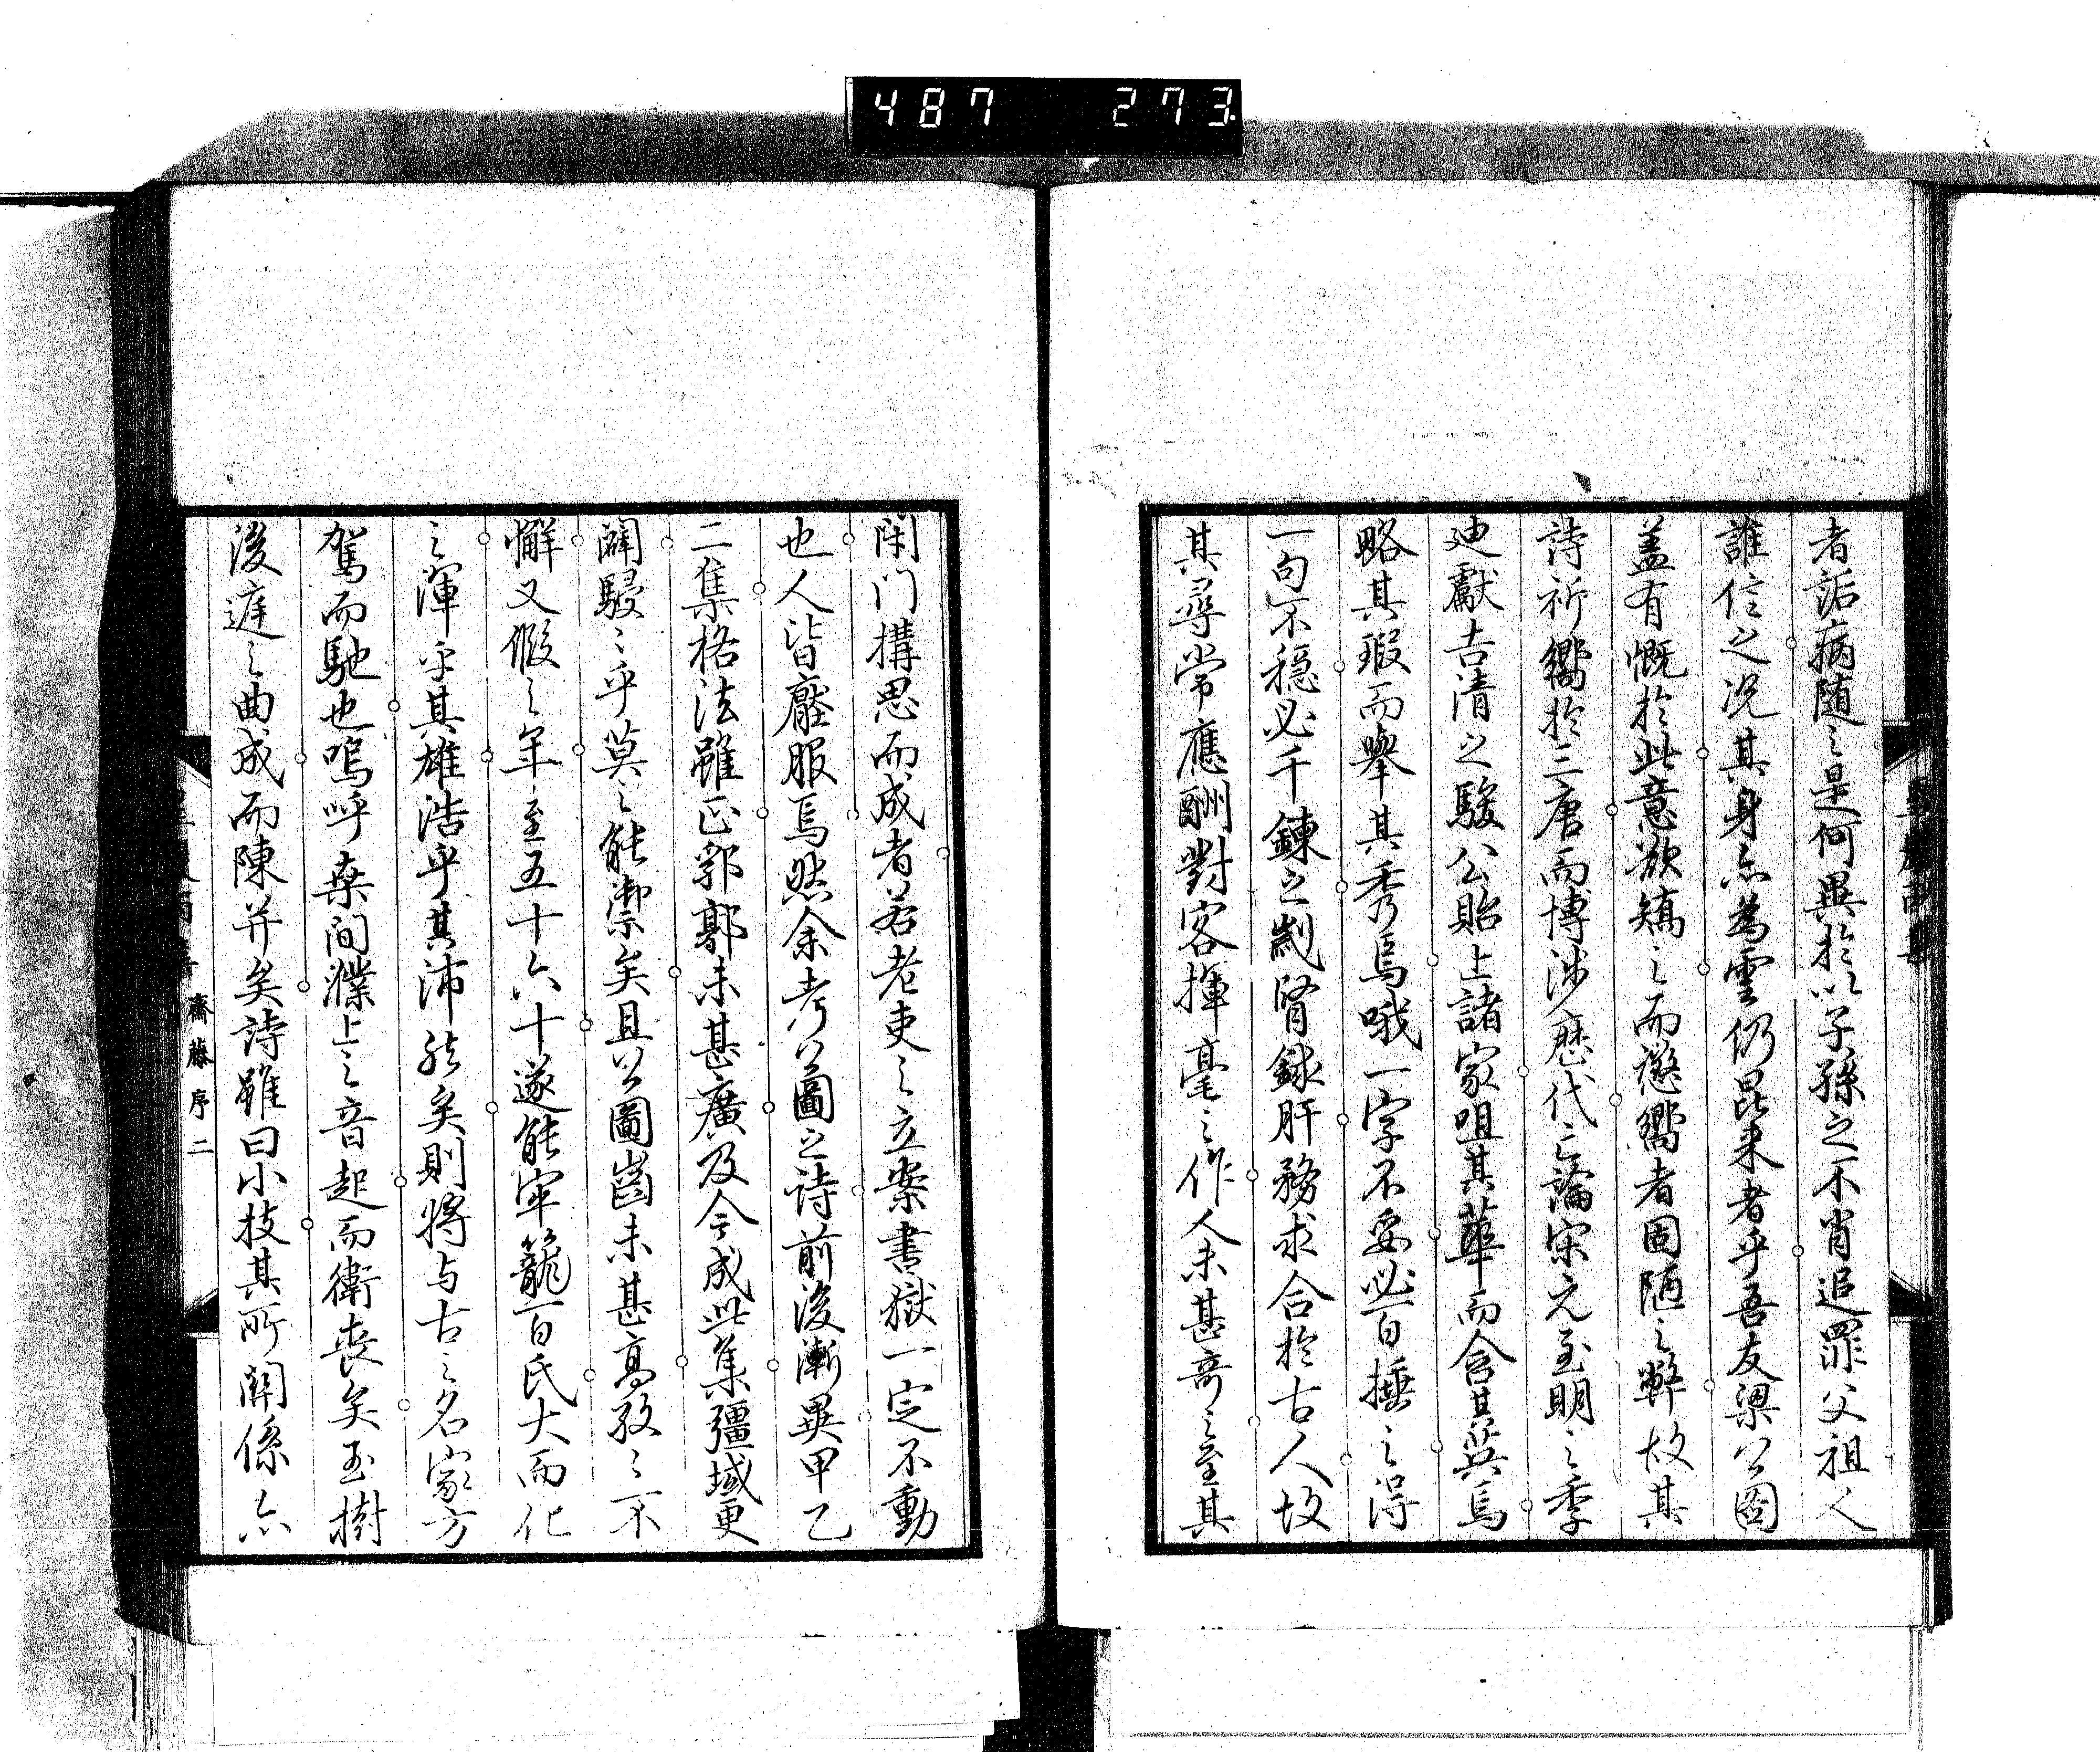 487 273
者詬病随之是何異於以子孫之不肖追罪父祖人
誰信之况其身亦為雲仍昆来者乎吾友梁公圖
盖有慨於此意欲矯之而懲嚮者固陋之弊故其
詩祈嚮於三唐而博渉歴代之論宋元至明之季
迪獻吉清之駿公貽上諸家咀其華而含其英焉
略其瑕而舉其秀焉哦一字不妥必百捶之得
一句不穏必千鍊之劌腎鉥肝務求合於古人故
其尋常應酬對客揮毫之作人未甚奇之至其
閑门構思而成者若老吏之立案書獄一定不動
也人皆壓服焉然余考公圖之詩前後漸異甲乙
二集格法雖正郛郭未甚廣及今成此集疆域更
闢駸之乎莫之能禦矣且公圖齒未甚高孜之不
懈又假之年至五十六十遂能牢籠百氏大而化
之渾乎其雄浩乎其沛然矣則将与古之名家方
駕而馳也嗚呼桑间濮上之音起而衛喪矣玉樹
後庭之曲成而陳并矣詩雖曰小技其所關係亦
齋藤序 二